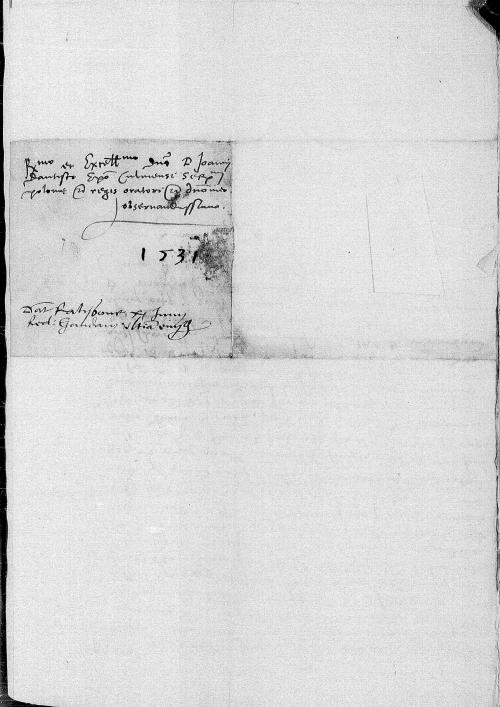 R[mo] et Excell[mo] dno D Joanni
Dantisco Epo Culmensi Ser[mi]
polonie etc regis oratori etc dno meo
observandissimo.
1531
Dat Ratisbone xi Junii
Red: Gandavi ultia eiusdem